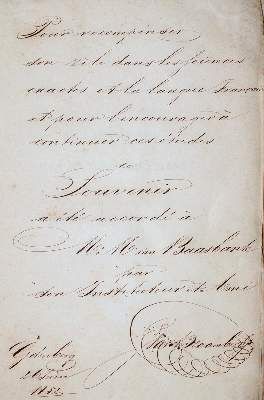 Pour recompenser
son zèle dans les sciences
exactes et la langue Français
et pour l'encourager à
continuer ces études
ce
Souvenir
a été accordé à
Mr. H. van Baasbank
par
son Instituteur et Ami